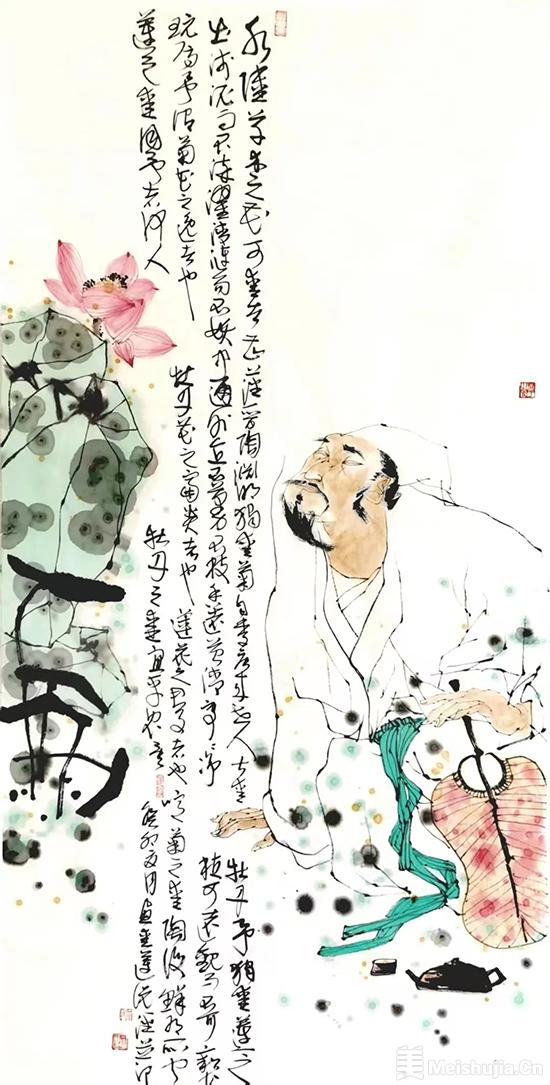 水陸草木之花可爱者甚蕃晋陶渊明獨爱菊自李唐来世人甚爱牡丹予獨爱蓮之
出淤泥而不染濯清漣而不妖中通外直不蔓不枝香遠益清亭亭净植可遠觀而不可褻
玩焉予谓菊花之逸者也牡丹花之富贵者也蓮花之君子者也噫菊之爱陶後鮮有闻
蓮之爱同予者何人牡丹之爱宜乎众矣
癸卯夏月画爱蓮说
美 Meishujia.Cn